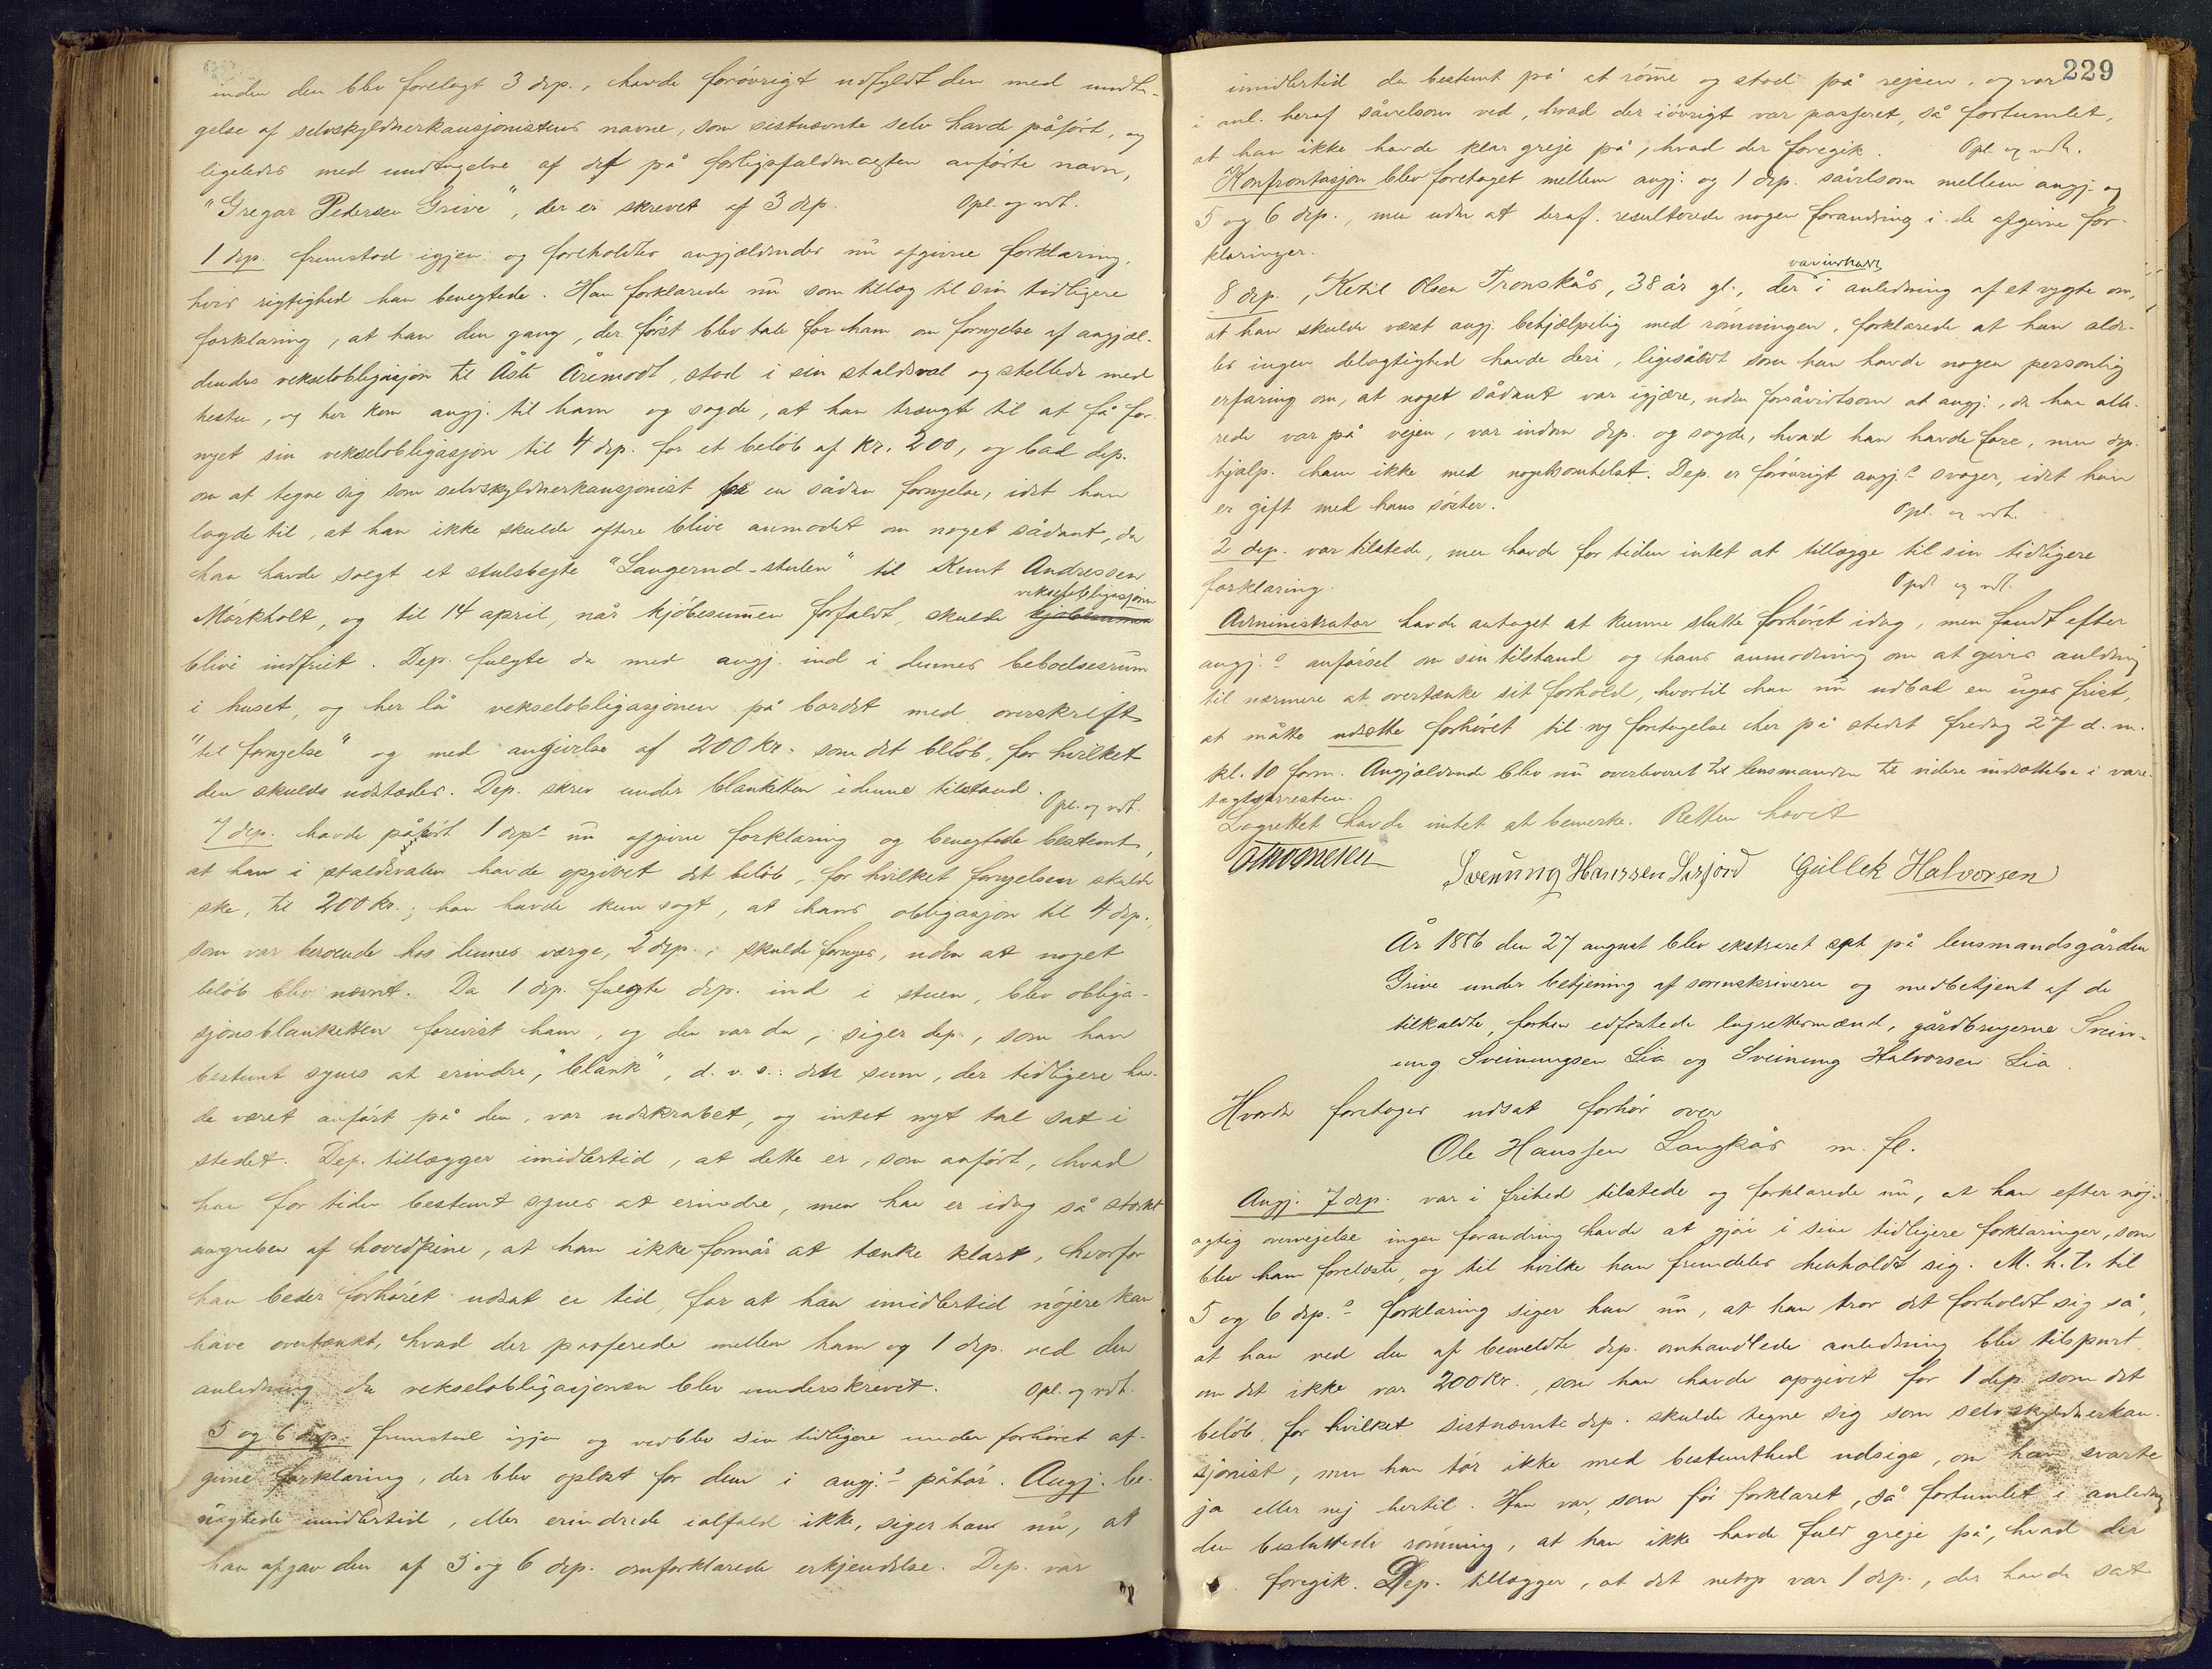 inden den blev forelagt 3 dep., havde forövrigt udfyldt den med undta-
gelse af selvskyldnerkausjonistens navne, som sistnævnte selv havde påfört, og
ligeledes med undtagelse af det på forligsfuldmagten anförte navn,
"Gregar Pedersen Grive", der er skrevet af 3 dep. Opl. og vdt.
1 dep. fremstod igjen og foreholdtes angjældendes nu afgivne forklaring,
hvis rigtighed han benegtede. Han forklarede nu som tillæg til sin tidligere
forklaring, at han den gang, der först blev tale for ham om fornyelse af angjæl-
dendes vekselobligasjon til Åste Åremodt, stod i sin staldsval og stellede med
hesten, og her kom angj. til ham og sagde, at han trængte til at få for-
nyet sin vekselobligasjon til 4 dep. for et belöb af kr. 200, og bad dep.
om at tegne sig som selvskyldnerkausjonist for en sådan fornyelse, idet han
lagde til, at han ikke skulde oftere blive anmodet om noget sådant, da
han havde solgt et stulsbejte "Langerud-stulen" til Knut Andressen
vekselobligasjonen
Mörkholt, og til 14 april, når kjöbesummen forfaldt, skulde kjöbesummen
blive indfriet. Dep. fulgte da med angj. ind i dennes beboelsesrum
i huset, og her lå vekselobligasjonen på bordet med overskrift
"til fornyelse" og med angivelse af 200 kr. som det belöb, for hvilket
den skulde udstædes. Dep. skrev under blanketten i denne tilstand. Opl. og vdt.
7 dep. havde påhört 1 deps nu afgivne forklaring og benegtede bestemt,
at han i staldsvalen havde opgivet det belöb, for hvilket fornyelsen skulde
ske, til 200 kr.; han havde kun sagt, at hans obligasjon til 4 dep.,
som var beroende hos dennes værge, 2 dep., skulde fornyes, uden at noget
belöb blev nævnt. Da 1 dep. fulgte dep. ind i stuen, blev obliga-
sjonsblanketten forevist ham, og den var da, siger dep., som han
bestemt synes at erindre, "blank", d. v. s.: den sum, der tidligere hav-
de været anfört på den, var udskrabet, og intet nyt tal sat i
stedet. Dep. tillægger imidlertid, at dette er, som anfört, hvad
han for tiden bestemt synes at erindre, men han er idag så stærkt
angreben af hovedpine, at han ikke formår at tænke klart, hvorfor
han beder forhöret udsat en tid, for at han imidlertid nöjere kan
have overtænkt, hvad der passerede mellem ham og 1 dep. ved den
anledning da vekselobligasjonen blev underskrevet. Opl. og vdt.
5 og 6 dep. fremstod igjen og vedblev sin tidligere under forhöret af-
givne forklaring, der blev oplæst for dem i angj.s påhör. Angj. be-
nægtede imidlertid, eller erindrede ialfald ikke, siger han nu, at
han afgav den af 5 og 6 dep. omforklarede erkjendelse. Dep. var
229
imidlertid da bestemt på at römme og stod på rejsen, og var
i anl. heraf såvelsom ved, hvad der iövrigt var passeret, så fortumlet,
at han ikke havde klar greje på, hvad der foregik. Opl. og vdt.
Konfrontasjon blev foretaget mellem angj. og 1 dep. såvelsom mellem angj. og
5 og 6 dep., men uden at deraf resulterede nogen forandring i de afgivne for-
klaringer.
var indkaldt
8 dep., Ketil Olsen Tronskås, 38 år gl., der i anledning af et rygte om,
at han skulde været angj. behjælpelig med römningen, forklarede at han alde-
les ingen delagtighed havde deri, ligesålidt som han havde nogen personlig
erfaring om, at noget sådant var igjære, uden forsåvidtsom at angj., da han alle-
rede var på vejen, var indom dep. og sagde, hvad han havde fore, men dep.
hjalp ham ikke med nogetsomhelst. Dep. er forövrigt angj.s svoger, idet han
er gift med hans söster. Opl. og vdt.
2 dep. var tilstede, men havde for tiden intet at tillægge til sin tidligere
forklaring. Opl. og vdt.
Administrator havde antaget at kunne slutte forhöret idag, men fandt efter
angj.s anförsel om sin tilstand og hans anmodning om at gives anledning
til nærmere at overtænke sit forhold, hvortil han nu udbad en uges frist,
at måtte udsætte forhöret til ny foretagelse her på stedet fredag 27 d. m.
kl. 10 form. Angjældende blev nu overleveret til lensmanden til videre indsættelse i vare-
tægtsarresten.
Lagrettet havde intet at bemerke. Retten hævet
Svenung Hanssen Gullek Halvorsen
År 1886 den 27 august blev ekstraret sat på lensmandsgården
Grive under betjening af sorenskriveren og medbetjent af de
tilkaldte, forhen edfæstede lagrettesmænd, gårdbrugerne Svein-
ung Sveinungsen Lia og Sveinung Halvorsen Lia.
Hvorda foretoges udsat forhör over
Ole Hanssen Langkås m. fl.
Angj. 7 dep. var i frihed tilstede og forklarede nu, at han efter nöj-
agtig overvejelse ingen forandring havde at gjöre i sine tidligere forklaringer, som
blev ham forelæste, og til hvilke han fremdeles henholdt sig. M. h. t. til
5 og 6 dep.s forklaring siger han nu, at han tror det forholdt sig så,
at han ved den af bemeldte dep. omhandlede anledning blev tilspurt
om det ikke var 200 kr., som han havde opgivet for 1 dep. som det
belöb, for hvilket sistnævnte dep. skulde tegne sig som selvskyldnerkau-
sjonist, men han tör ikke med bestemthed udsige, om han svarte
ja eller nej hertil. Han var, som för forklaret, så fortumlet i anledn.
den besluttede römning, at han ikke havde fuld greje på, hvad der
foregik. Dep. tillægger, at det netop var 1 dep., der havde sat